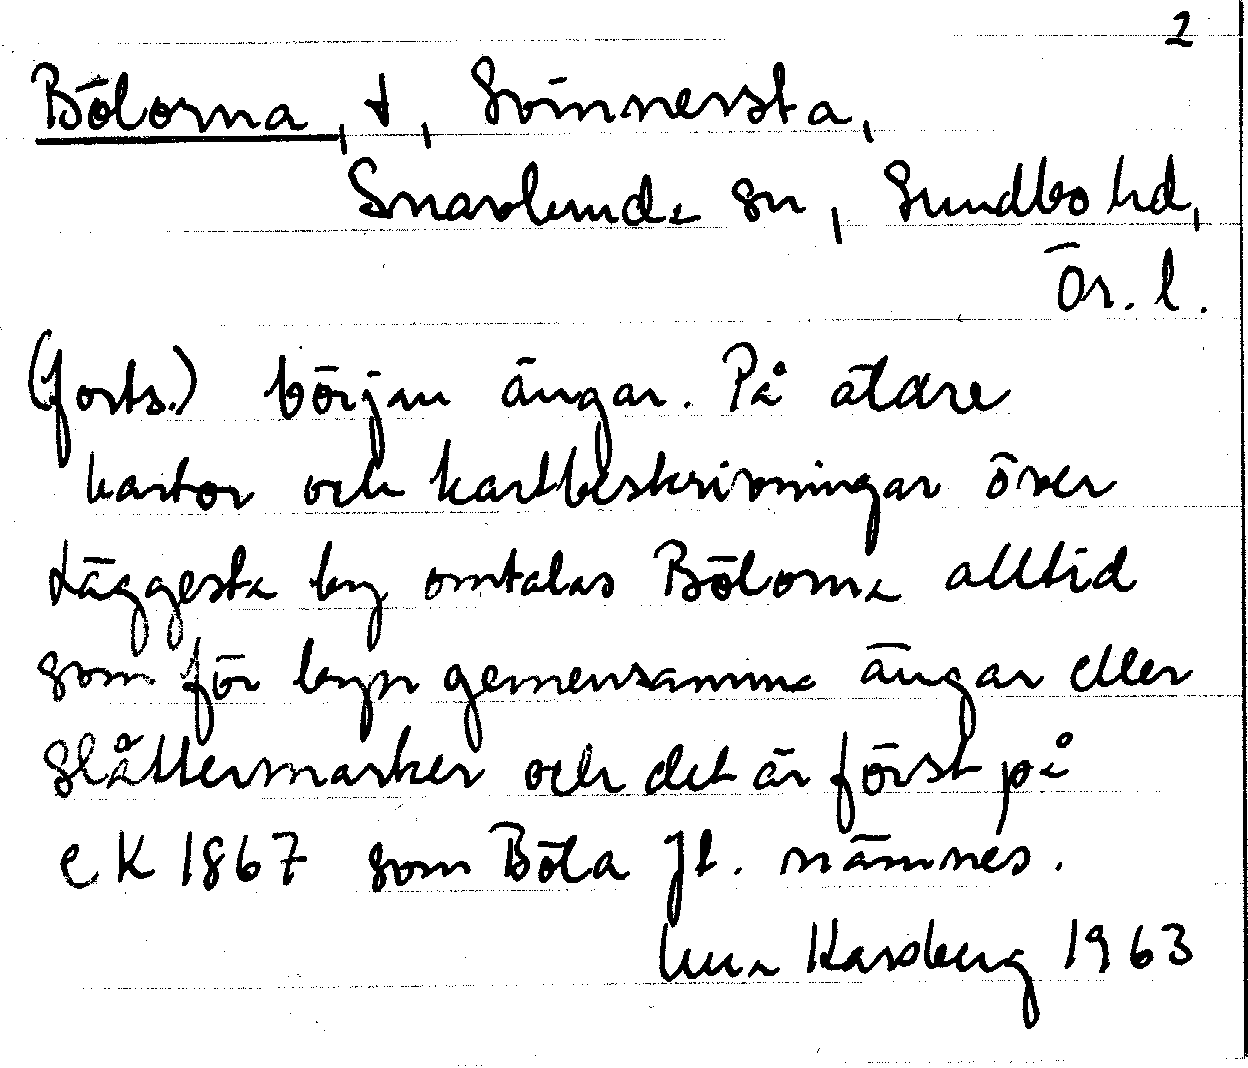 2
Bölorna, t, Svinnersta,
Snavlunda sn, Sundbo hd,
Ör. l.
(forts.) början ängar. På äldre
kartor och kartbeskrivningar över
Täggesta by omtalas Bölorna alltid
som för byn gemensamma ängar eller
slåttermarker och det är först på
eK 1867 som Böla Jt. nämnes.
Karlberg 1963